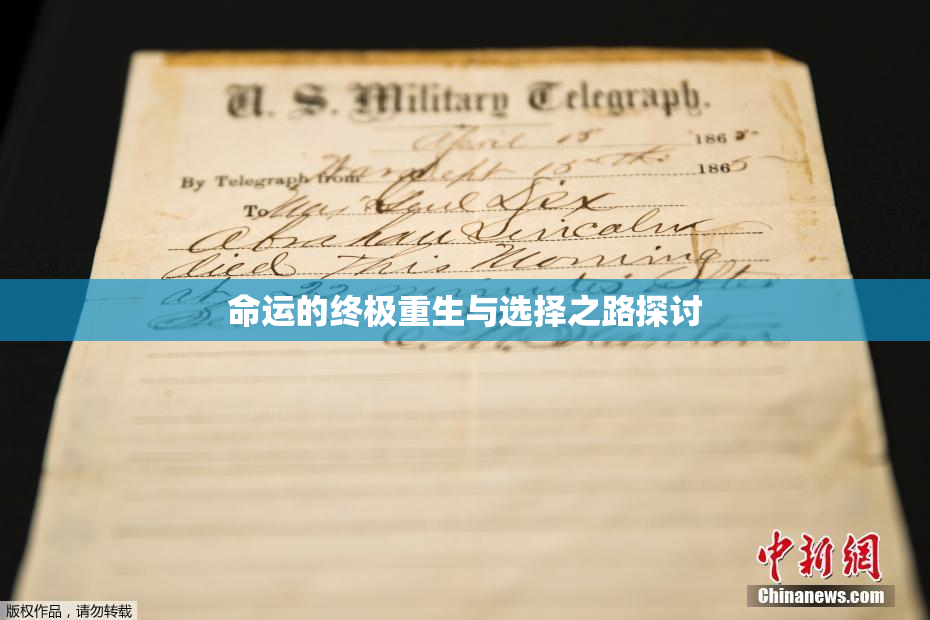 U. S. Military Telegraph.
April 15 1865
By Telegraph from War Dept 15th 1865
To Maj Genl Dix
Abraham Lincoln
died This Morning
at 22 minutes after
命运的终极重生与选择之路探讨
E. M. Stanton
中新網
Chinanews.com
版权作品，请勿转载